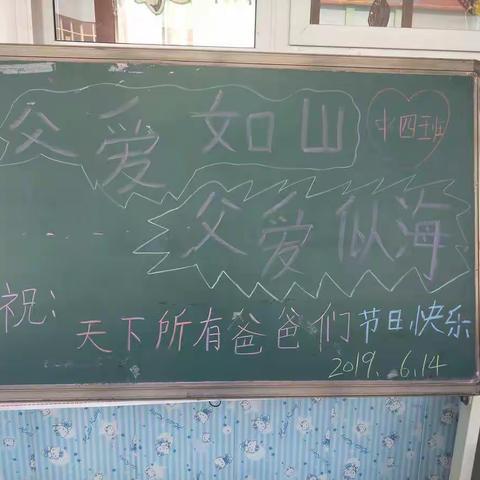 父爱如山
中四班
父爱似海
祝:
天下所有爸爸们节日快乐
2019.6.14